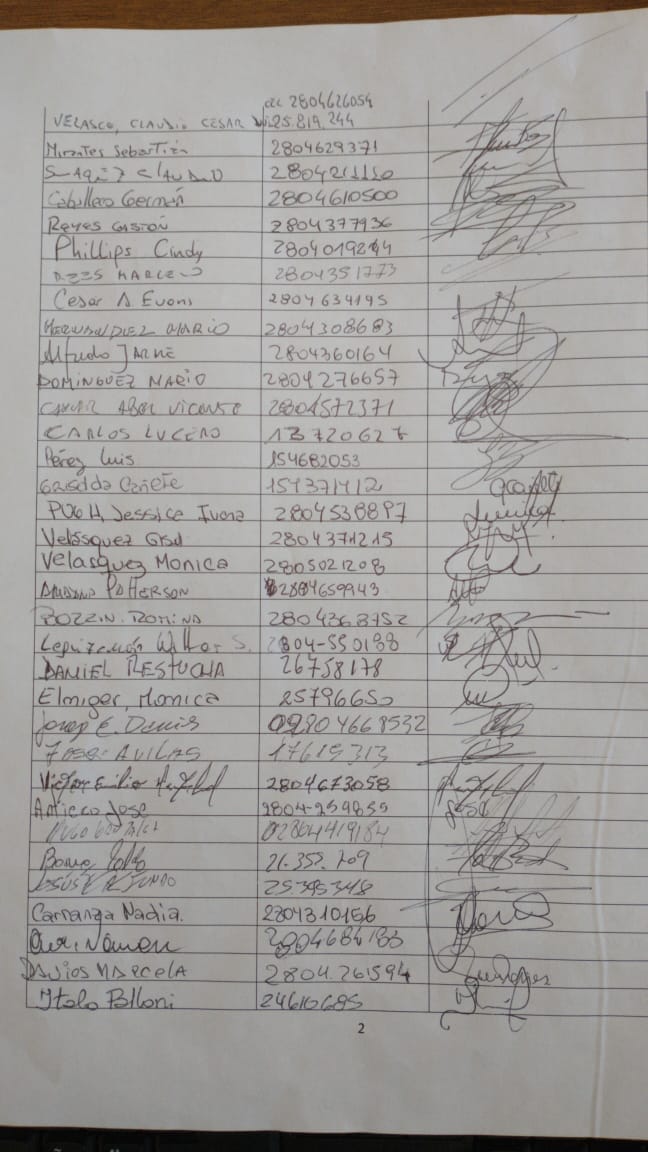 cel 2804626054
VELASCO, CLAUDIO CESAR 25.819.244
Mirantes Sebastián 2804629371
2804211110
Caballero Germán 2804610500
Reyes GASTÓN 2804377936
Phillips Cindy 2804019244
MARCELO 2804351773
Cesar A Evans 2804634145
HERNANDEZ MARIO 2804308683
Alfredo JARNE 2804360164
DOMINGUEZ MARIO 2804276657
ABEL VICENTE 2804572371
CARLOS LUCERO 13720627
Pérez Luis 154682053
Griselda Cañete 154371412
PUGH, Jessica Ivana 2804538897
Velásquez Gisel 2804371215
Velasquez Monica 2805021208
PATTERSON 2804659943
BOZZIN. ROMINA 2804368752
Leguizamón Walter S. 2804-550188
DANIEL RESTUCHA 26758178
Elmiger, Monica 25796650
Josep E. Denis 02804668532
JOSE AVILAS 17615313
Victor Emilio 2804673058
Antieco Jose 2804-259855
02804419184
21.352.709
JESUS 25395348
Carranza Nadia. 2804310156
2804684183
DAVIOS MARCELA 2804.261594
Italo Belloni 24610685
2